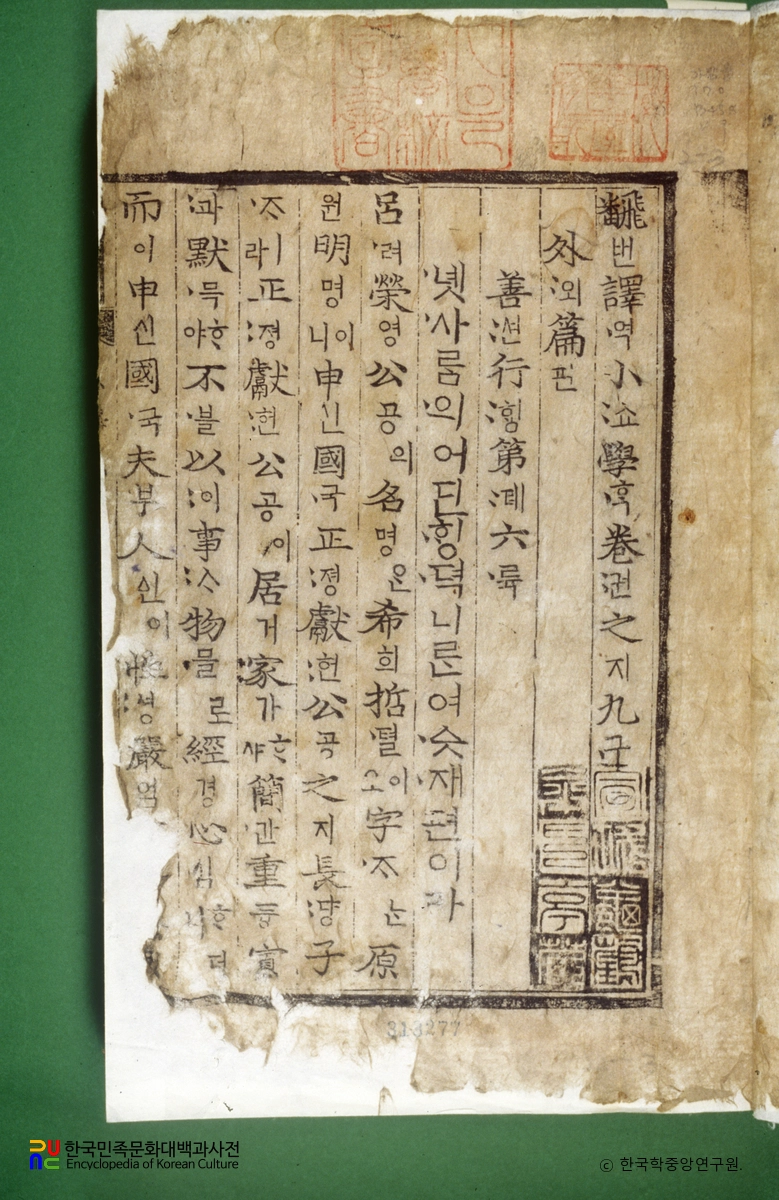 飜번譯역小쇼學ᄒᆞᆨ卷권之지九구
外외篇편
善션行ᄒᆡᆼ第뎨六륙
녯사ᄅᆞᆷ의어딘ᄒᆡᆼ뎍니ᄅᆞᆫ여슷재편이라
呂려榮영公공의名명은希희哲텰이오字ᄌᆞᄂᆞᆫ原
원明명이니申신國국正졍獻헌公공之지長댱子
ᄌᆞㅣ라正졍獻헌公공이居거家가ᄒᆞ샤簡간重듕寡
과默믁ᄒᆞ야不블以이事ᄉᆞ物믈로經경心심ᄒᆞ시더
而이申신國국夫부人인이性셩嚴엄
한국민족문화대백과사전
Encyclopedia of Korean Culture
© 한국학중앙연구원.